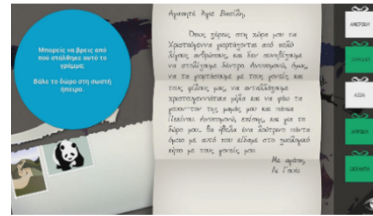 Μπορείς να βρεις από
που στάλθηκε αυτό το
γράμμα;
Βάλε το δώρο στη σωστή
ήπειρο.
Αγαπητέ Άγιε Βασίλη,
Όπως ξέρεις, στη χώρα μου τα
Χριστούγεννα γιορτάζονται από πολύ
λίγους ανθρώπους, και δεν συνηθίζουμε
να στολίζουμε δέντρο. Ανυπομονώ, όμως,
να τα γιορτάσουμε με τους γονείς και
τους φίλους μας, να ανταλλάξουμε
χριστουγεννιάτικα μήλα και να φάω τα
της μαμάς μου και πάπια
Πεκίνου. Ανυπομονώ, επίσης, και για το
δώρο μου. Θα ήθελα ένα λούτρινο πάντα
όμοιο με αυτό που είδαμε στο ζωολογικό
κήπο με τους γονείς μου.
Με αγάπη,
ΑΜΕΡΙΚΗ
ΑΣΙΑ
ΑΦΡΙΚΗ
ΩΚΕΑΝΙΑ